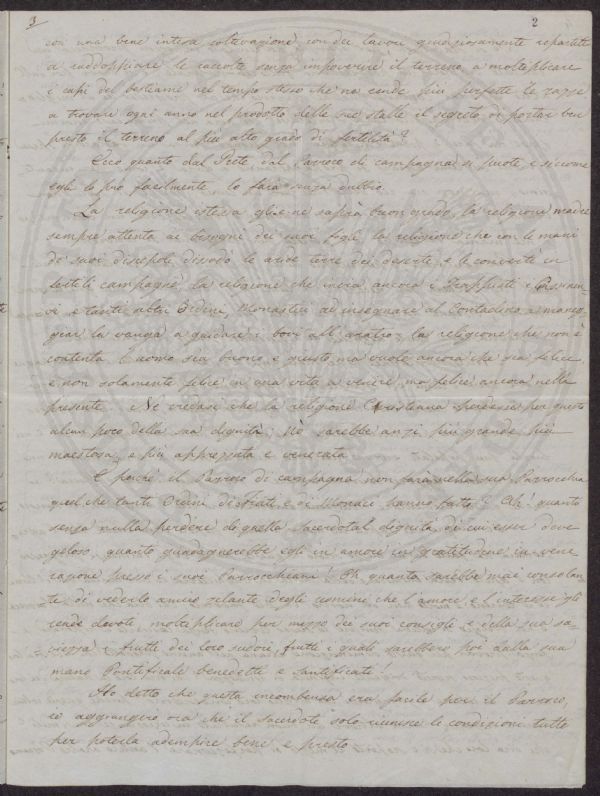 3 2
con una bene intesa coltivazione con dei lavori giudiziosamente repartiti
a raddoppiare le raccolte senza impoverire il terreno, a moltiplicare
i capi del bestiame nel tempo stesso che ne rende più perfette le razze
a trovare ogni anno nel prodotto delle sue stalle il segreto di portar ben
presto il terreno al più alto grado di fertilità?
Ecco quanto dal Prete, dal Parroco di campagna si puote, e siccome
egli lo può facilmente, lo farà senza dubbio.
La religione istessa gliene saprà buon grado, la religione madre
sempre attenta ai bisogni dei suoi figli, la religione che con le mani
de' suoi discepoli dissodò le aride terre dei deserti, e le convertì in
fertili campagne, la religione che invia ancora i Trappisti i
e tanti altri Ordini Monastici ad insegnare al Contadino a maneg-
giar la vanga a guidare i bovi all'aratro; la religione che non è
contenta l'uomo sia buono e giusto, ma vuole ancora che sia felice
e non solamente felice in una vita a venire, ma felice ancora nella
presente. Né credasi che la religione Cristiana perdesse per questo
alcun poco della sua dignità; Nò sarebbe anzi più grande più
maestosa, e più apprezzata e venerata
E poiché il Parroco di campagna non farà nella sua Parrocchia
quel che tanti Ordini di Frati, e di Monaci hanno fatto? Oh! quanto
senza nulla perdere di quella sacerdotal dignità di cui esser deve
geloso, quanto guadagnerebbe egli in amore in gratitudine in vene-
razione presso i suoi Parrocchiani! Oh quanto sarebbe mai consolan-
te di vederlo amico zelante degli uomini che l'amore, e l'interesse gli
rende devoti, moltiplicare per mezzo dei suoi consigli e della sua sa-
viezza i frutti dei loro sudori, frutti i quali sarebbero poi dalla sua
mano Pontificale benedetti e santificati!
Ho detto che questa incombenza era facile per il Parroco,
io aggiungerò ora che il sacerdote solo riunisce le condizioni tutte
per poterla adempire bene e presto